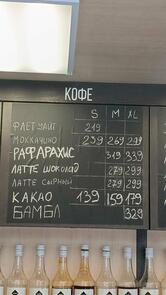 КОФЕ
S M XL
ФЛЕТ УАЙТ 219
МОККАЧИНО 239 269 299
РАФ АРАХИС 319 339
ЛАТТЕ ШОКОЛАД 279 299
ЛАТТЕ СЫРНЫЙ 279 299
КАКАО 139 159 179
БАМБЛ 329